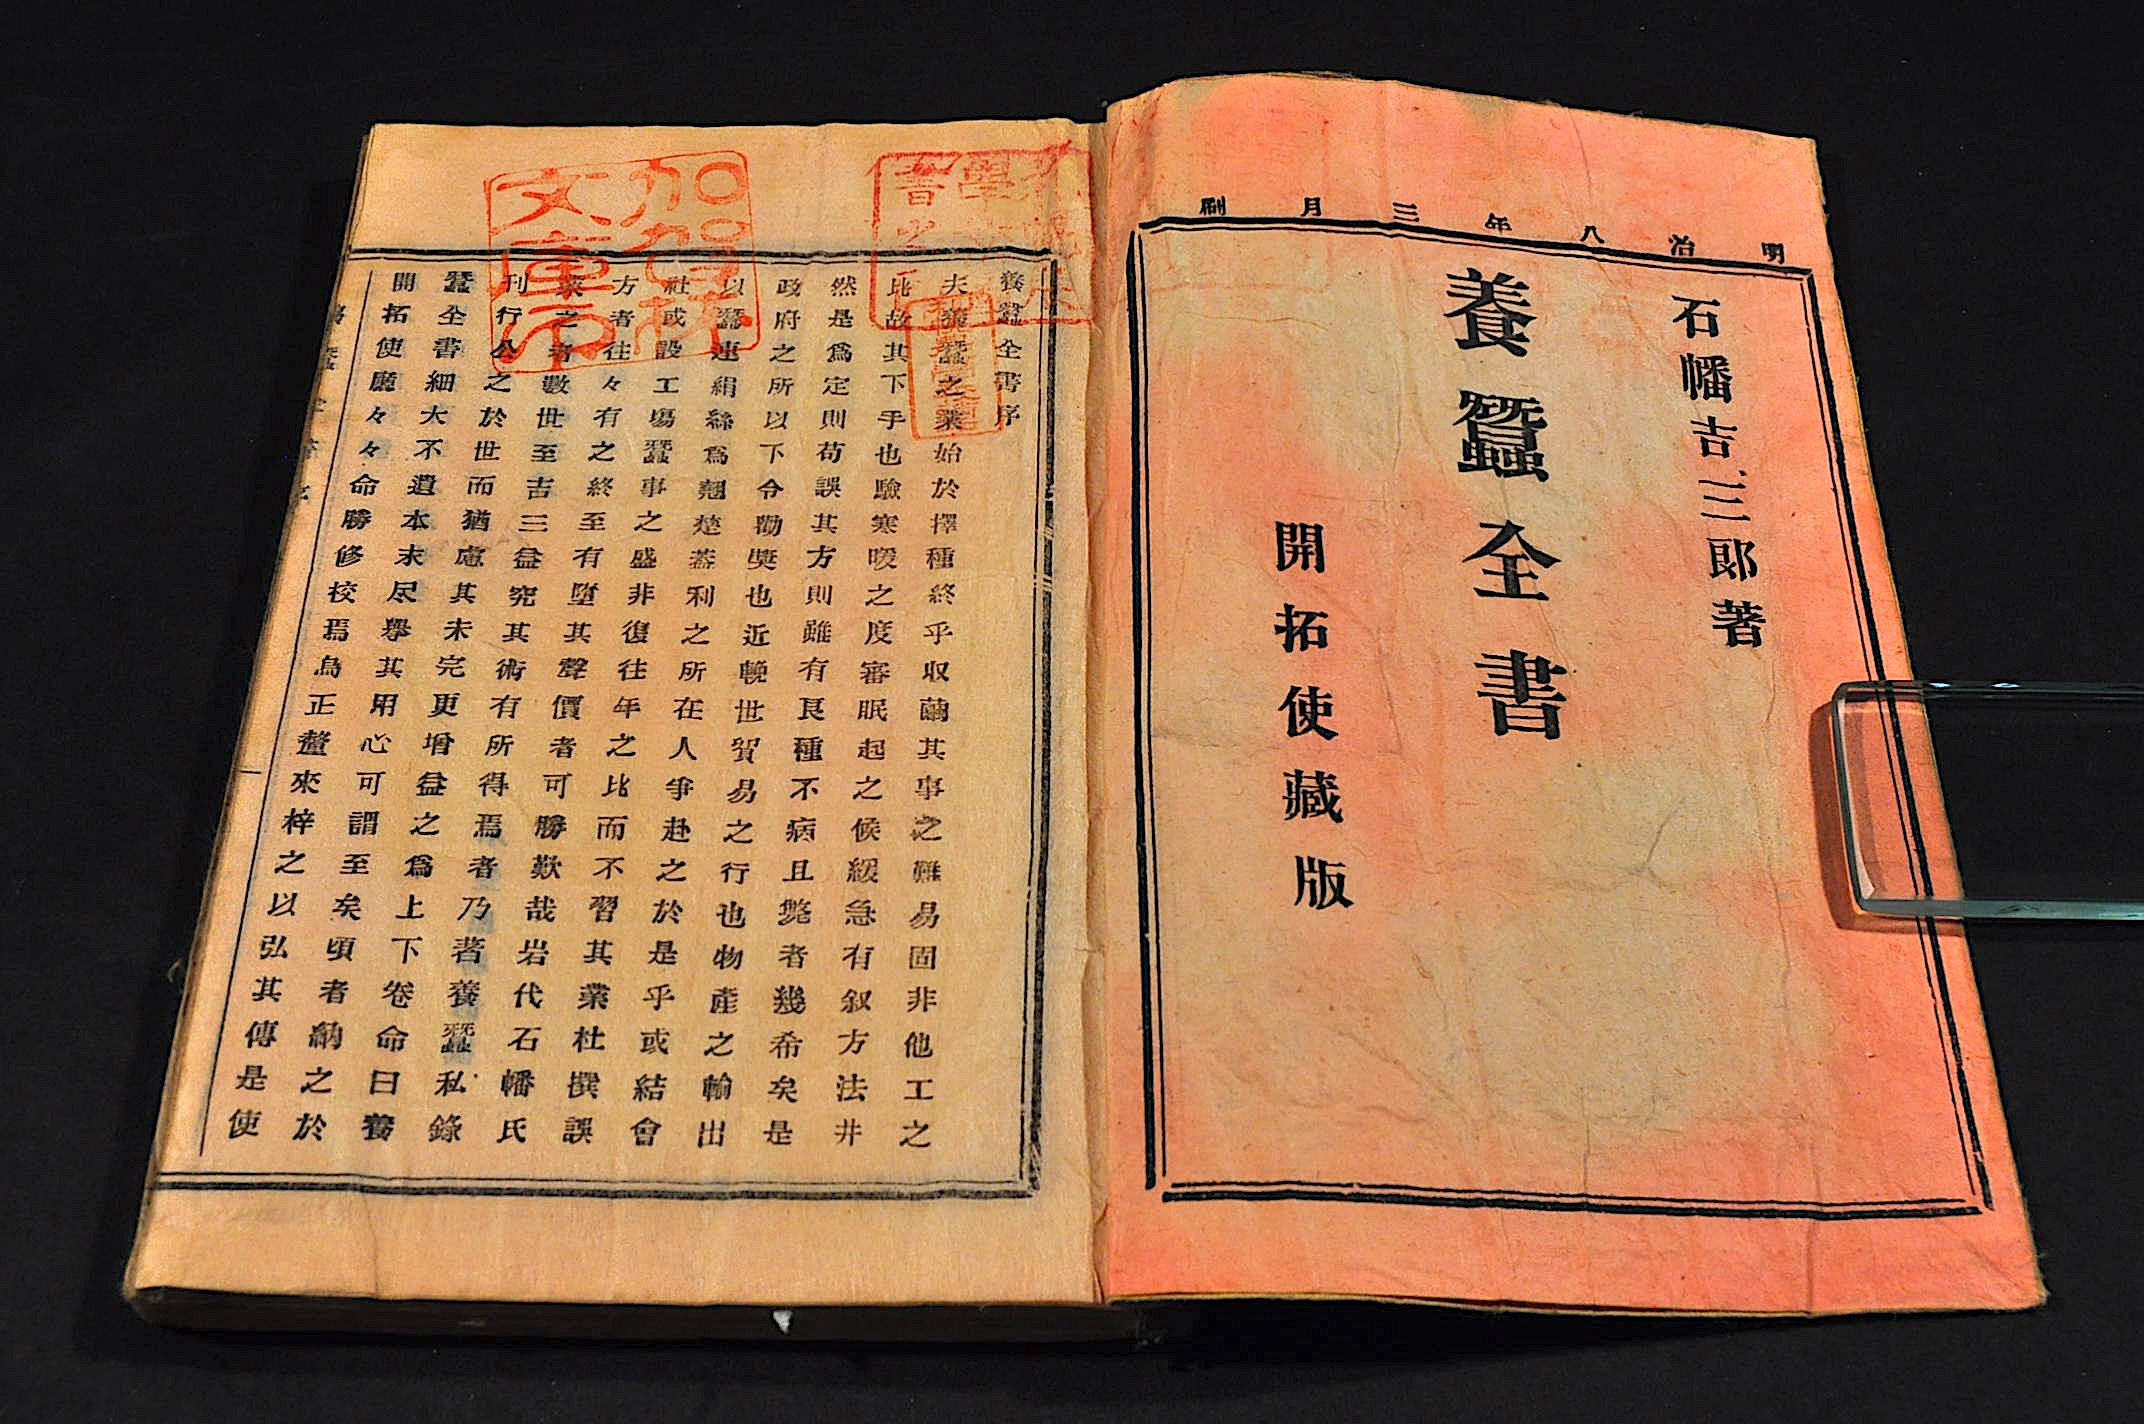 明治八年三月刷
石幡吉三郎著
養蠶全書
開拓使藏版
養蠶全書序
夫養蠶之業始於擇種終乎収繭其事之難易固非他工之
比故其下手也驗寒暖之度審眠起之候緩急有叙方法井
然是爲定則苟誤其方則雖有良種不病且斃者幾希矣是
政府之所以下令勸奬也近輓世貿易之行也物產之輸出
以蠶連絹絲爲翹楚蓋利之所在人爭赴之於是乎或結會
社或設工塲蠶事之盛非復往年之比而不習其業杜撰誤
方者往々有之終至有墮其聲價者可勝歎哉岩代石幡氏
業之者數世至吉三益究其術有所得焉者乃著養蠶私錄
刊行公之於世而猶慮其未完更增益之爲上下卷命曰養
蠶全書細大不遺本末尽擧其用心可謂至矣頃者納之於
開拓使廳々々命勝修校焉烏正釐來梓之以弘其傳是使
加賀林
文庫印